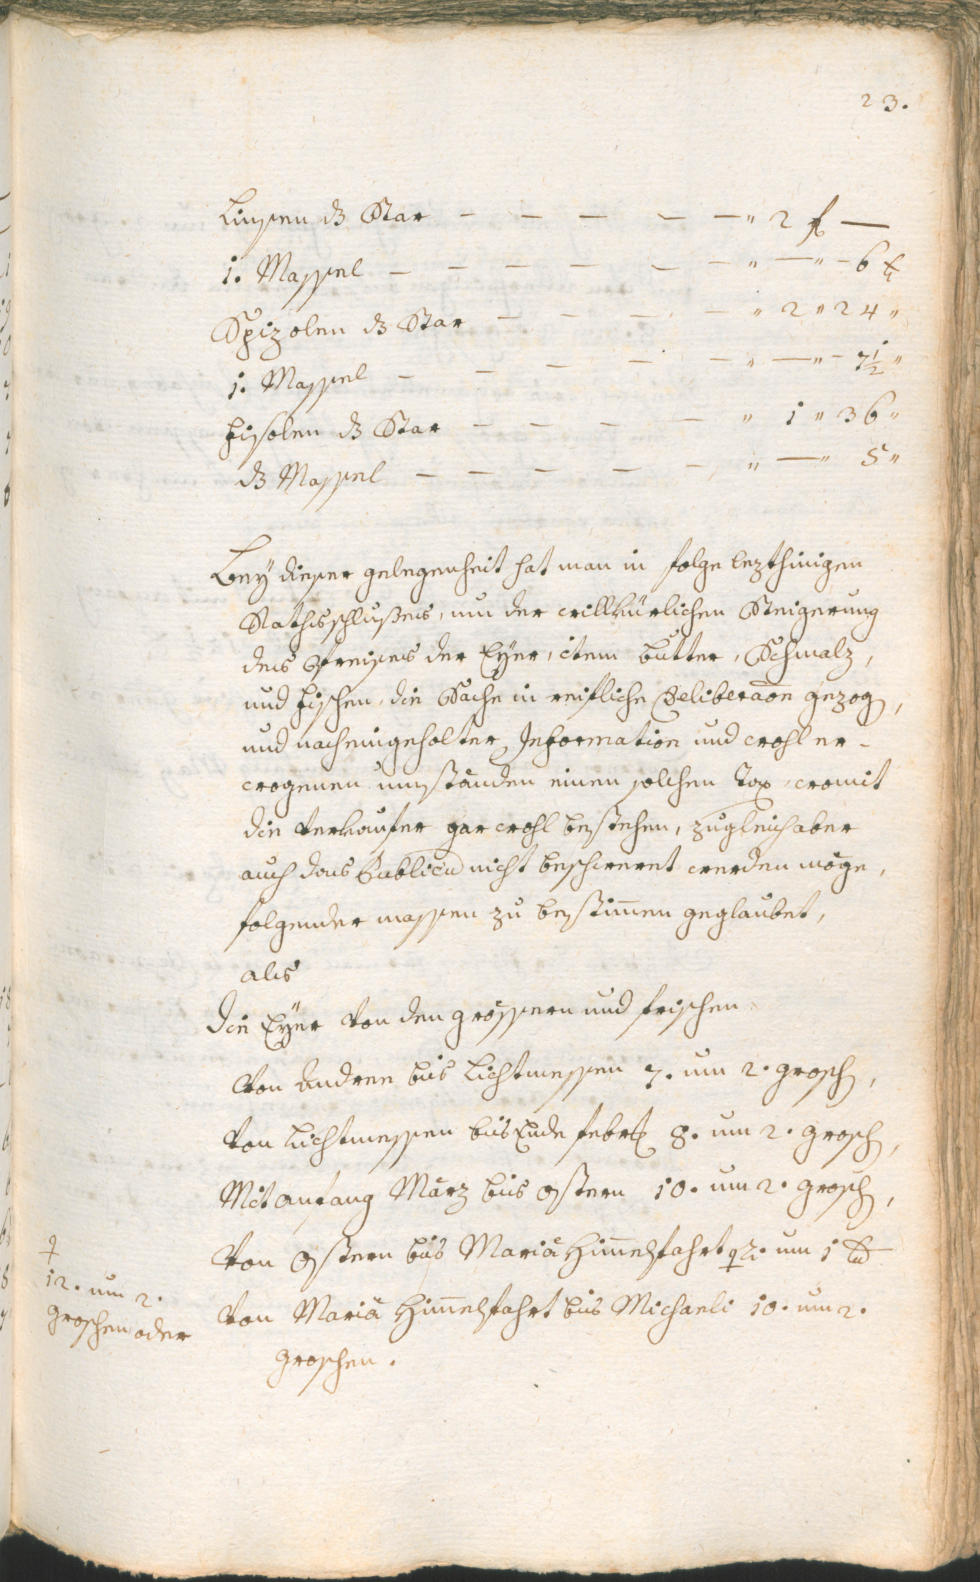 23.
Linsen dz Star — — — — — " 2 f —
1. Massel — — — — — — " — " — 6 x
Spizolen dz Star — — — — — " 2 " 24 "
1. Massel — — — — — " — " — 7½ "
Fisolen dz Star — — — — — " 1 " 36 "
dz Massel — — — — — " — " 5 "
Bey dieser gelegenheit hat man in folge lezthinigen
Rathsschlußes, um der willkürlichen Steigerung
des Preises der Eÿer, item butter, Schmalz,
und fischen, die Sache in reifliche Deliberaōn gezog,
und nach eingeholter Information und wohl er-
wogenen umständen einen solchen Tax, womit
die Verkaufer gar wohl bestehen, zugleich aber
auch das Publicū nicht beschweret werden möge,
folgender massen zu bestim̄en geglaubet,
als
die Eÿer von den grössern und frischen
Von Andree bis Lichtmessen 7. um 2. grosch,
Von Lichtmessen bis Ende febr 8. um 2. grosch,
Mit anfang März bis Ostern 10. um 2. grosch,
Von Ostern bis Mariä Him̄elfahrt 12. um 1
12. um 2.
groschen oder
Von Mariä Him̄elfahrt bis Michaeli 10. um 2.
groschen.